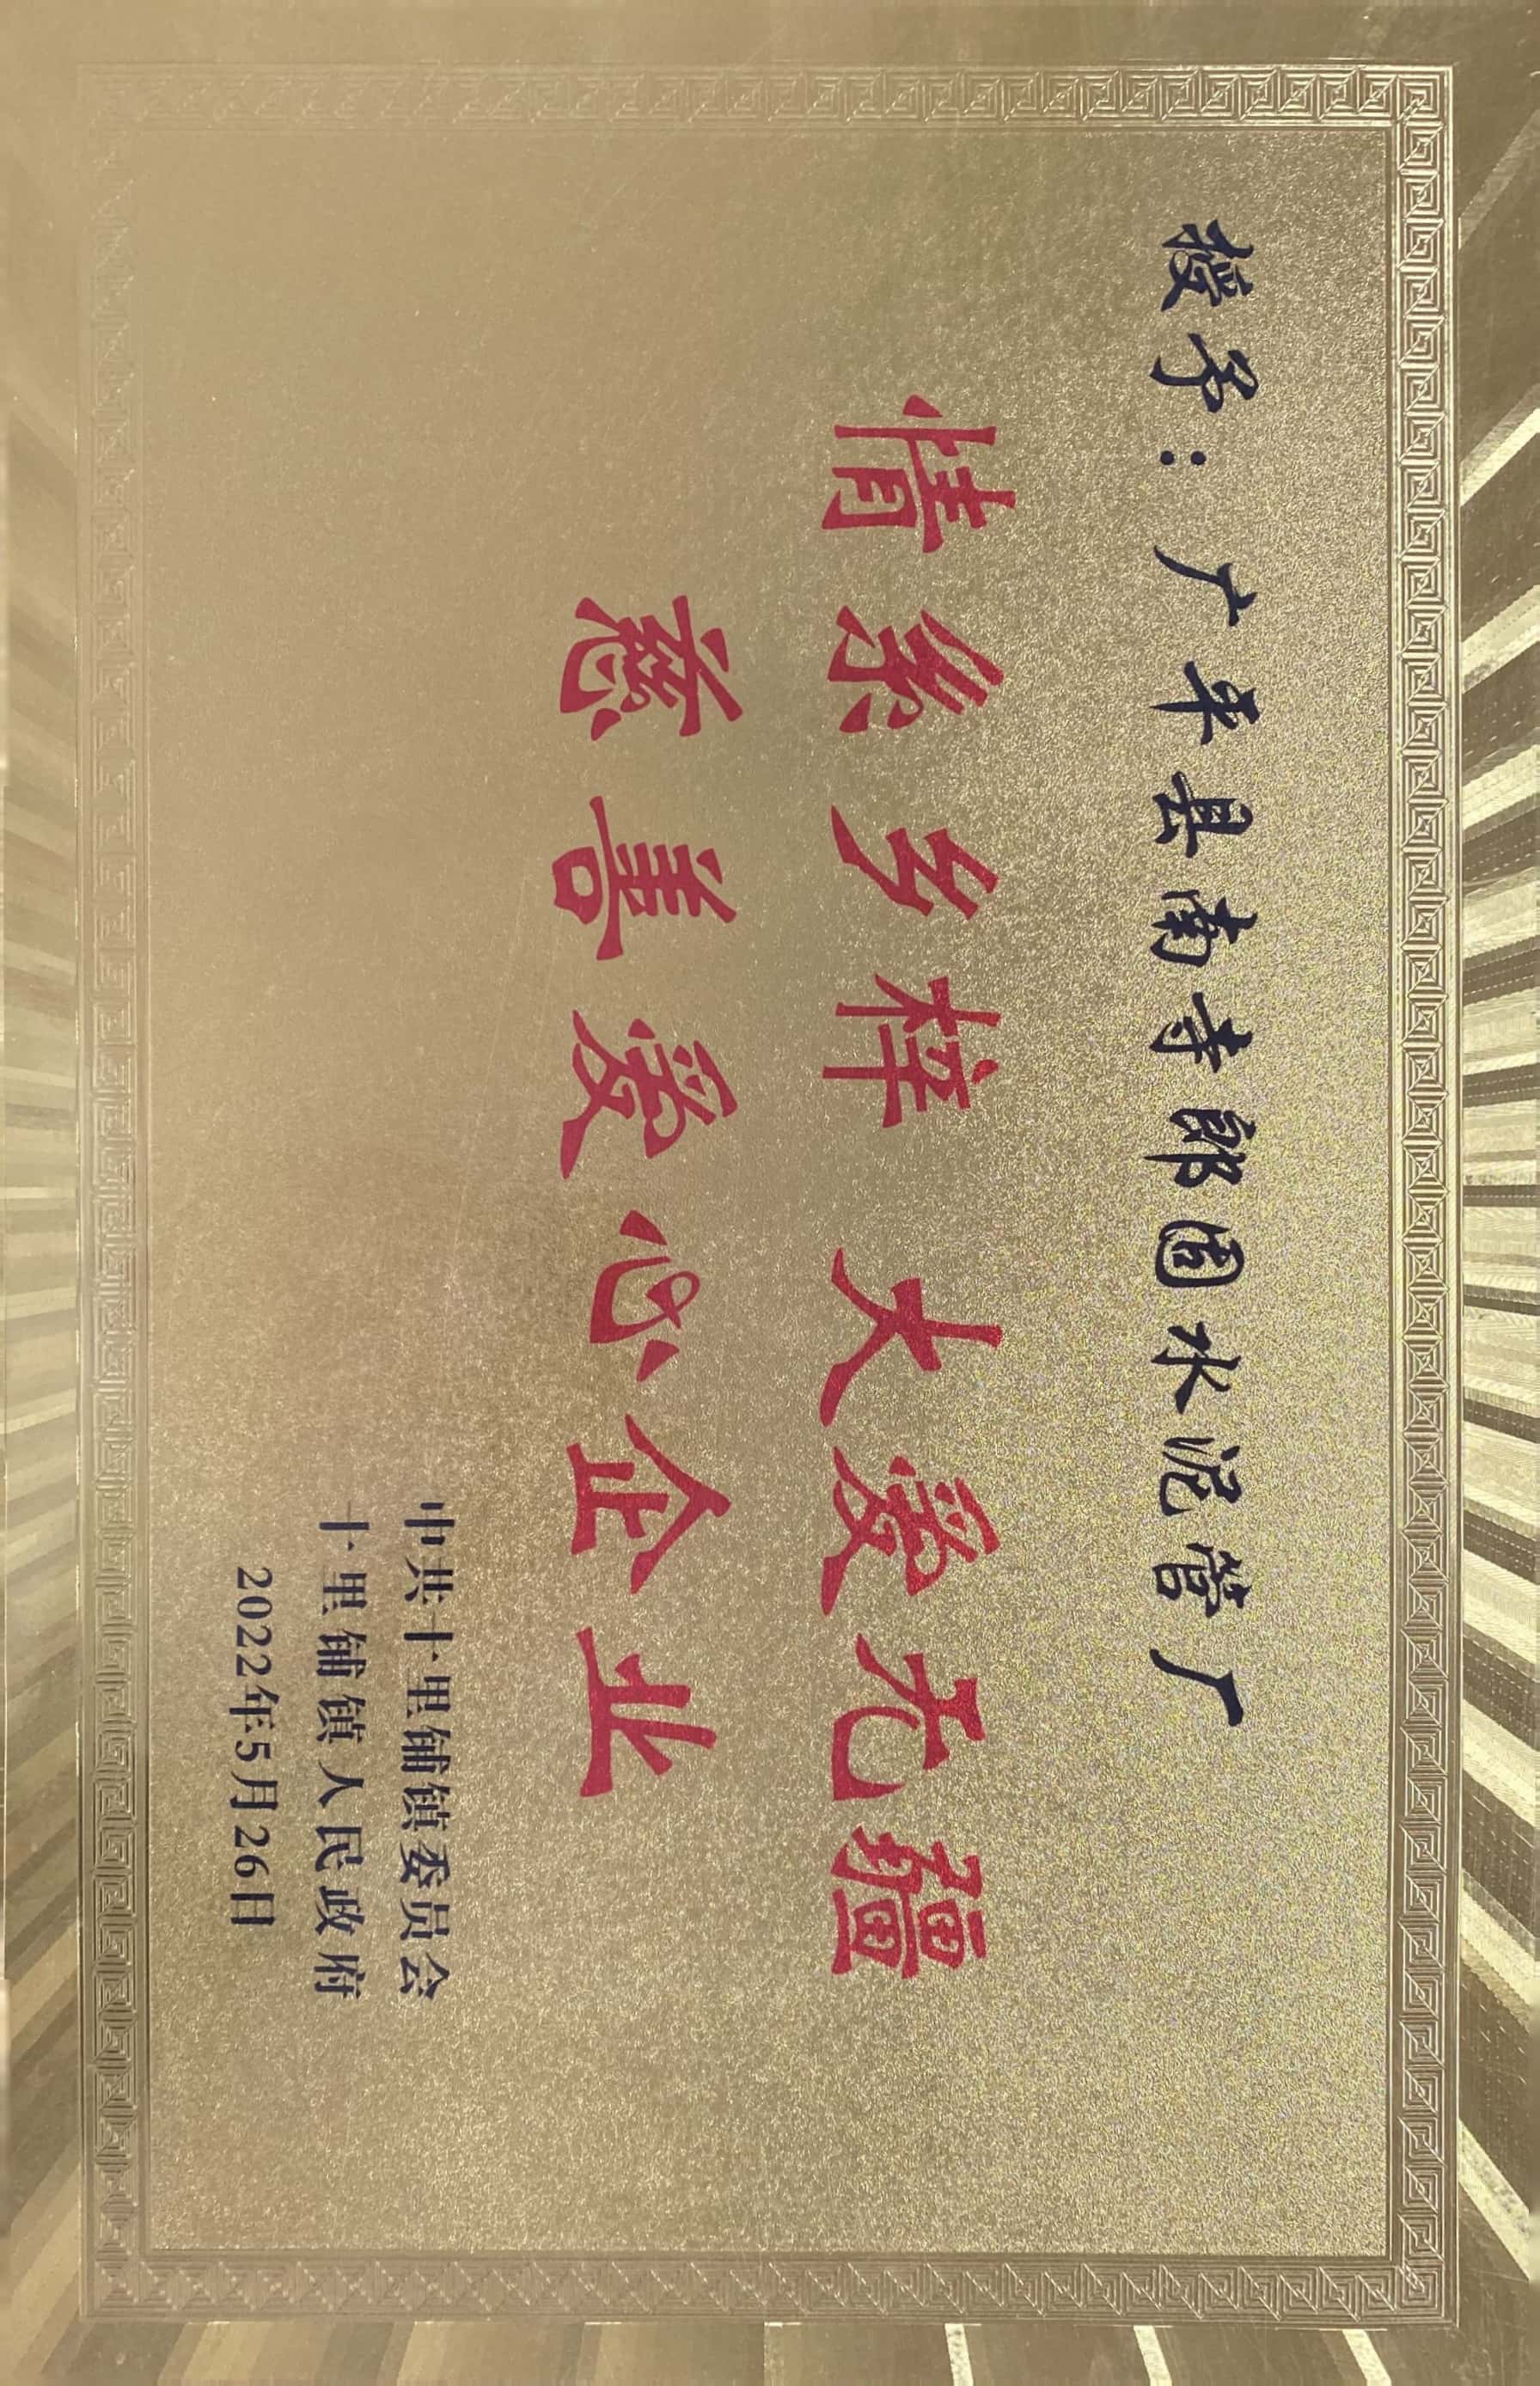 授予：广平县南寺郎固水泥管厂
情系乡梓 大爱无疆
慈善爱心企业
中共十里铺镇委员会
十里铺镇人民政府
2022年5月26日